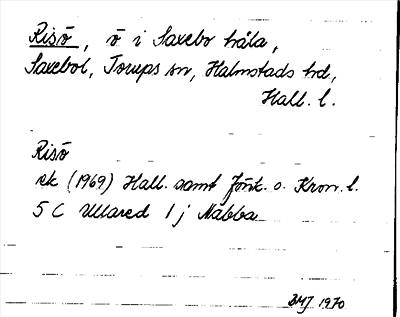 Risö, ö i Saxebo håla,
Saxebol, Torups sn, Halmstads hd,
Hall. l.
Risö
ek (1969) Hall. samt Jönk. o. Kron. l.
5 C Ullared 1 j Nabba
BMJ 1970